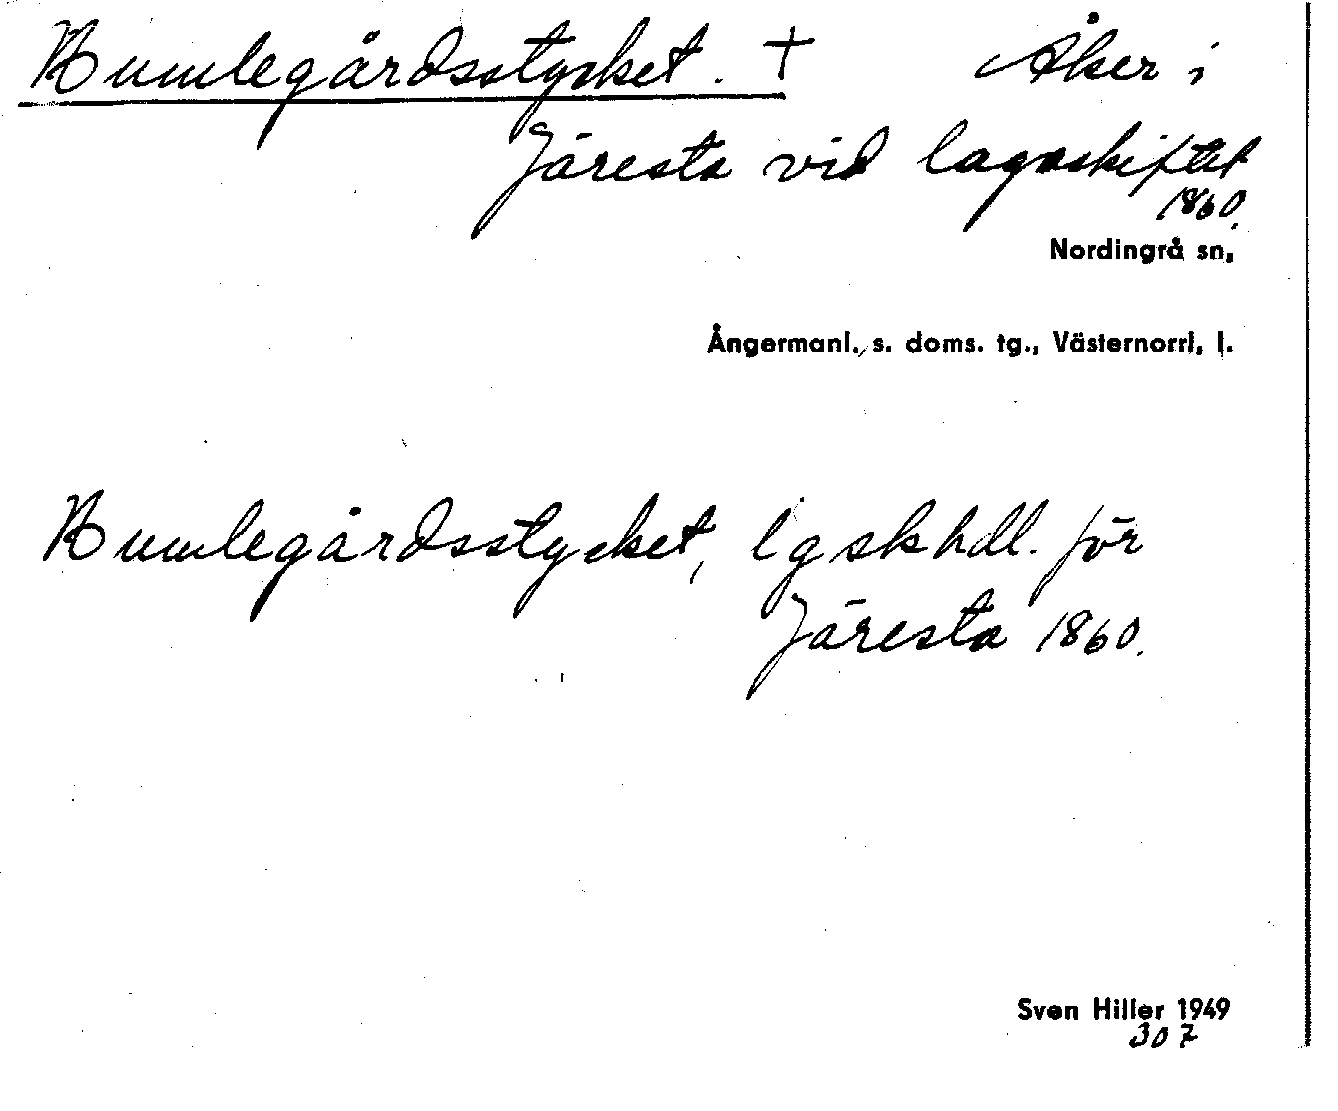 Humlegårdsstycket. † Åker i
Järesta vid lagaskiftet
1860.
Nordingrå sn,
Ångermanl. s. doms. tg., Västernorrl. l.
Humlegårdsstycket, lgskhdl. för
Järesta 1860.
Sven Hiller 1949
307